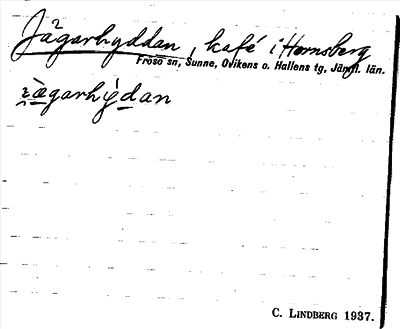 Jägarhyddan, kafé i Hornsberg
Frösö sn, Sunne, Ovikens o. Hallens tg, Jämtl. län.
ɟæ̀garhỳdan
C. LINDBERG 1937.